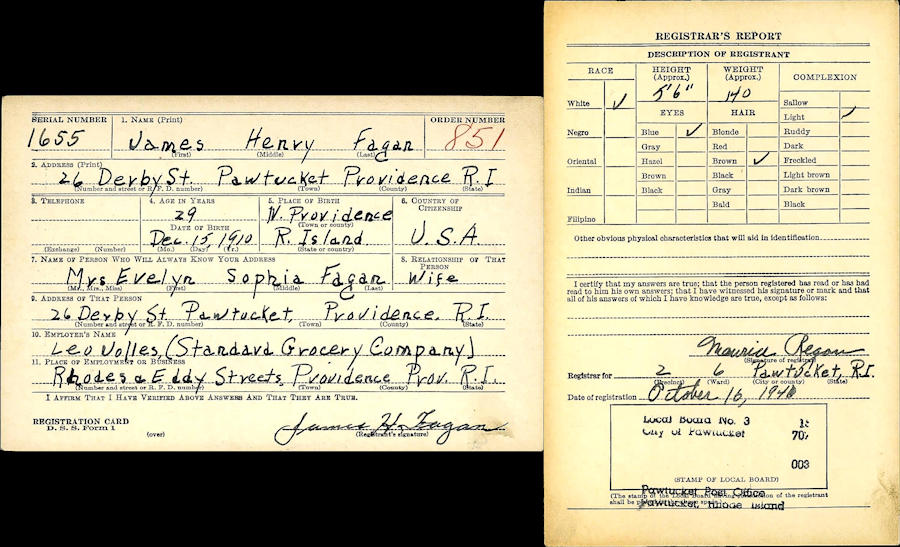 SERIAL NUMBER 1. NAME (Print) ORDER NUMBER
1655 James Henry Fagan 851
(First) (Middle) (Last)
2. ADDRESS (Print)
26 Derby St. Pawtucket Providence R.I
(Number and street or R. F. D. number) (Town) (County) (State)
3. TELEPHONE 4. AGE IN YEARS 5. PLACE OF BIRTH 6. COUNTRY OF CITIZENSHIP
29 N. Providence
(Town or county)
DATE OF BIRTH
Dec. 15, 1910 R. Island U.S.A.
(Exchange) (Number) (Mo.) (Day) (Yr.) (State or country)
7. NAME OF PERSON WHO WILL ALWAYS KNOW YOUR ADDRESS 8. RELATIONSHIP OF THAT PERSON
Mrs Evelyn Sophia Fagan Wife
(Mr., Mrs., Miss) (First) (Middle) (Last)
9. ADDRESS OF THAT PERSON
26 Derby St. Pawtucket, Providence, R.I.
(Number and street or R. F. D. number) (Town) (County) (State)
10. EMPLOYER'S NAME
Leo (Standard Grocery Company)
11. PLACE OF EMPLOYMENT OR BUSINESS
Rhodes & Eddy Streets, Providence Prov. R.I.
(Number and street or R. F. D. number) (Town) (County) (State)
I AFFIRM THAT I HAVE VERIFIED ABOVE ANSWERS AND THAT THEY ARE TRUE.
REGISTRATION CARD
D. S. S. Form 1 (over) James H. Fagan
(Registrant's signature)
REGISTRAR'S REPORT
DESCRIPTION OF REGISTRANT
RACE HEIGHT (Approx.) WEIGHT (Approx.) COMPLEXION
5'6" 140
White ✓ EYES HAIR Sallow
Light ✓
Negro Blue ✓ Blonde Ruddy
Gray Red Dark
Oriental Hazel Brown ✓ Freckled
Brown Black Light brown
Indian Black Gray Dark brown
Bald Black
Filipino
Other obvious physical characteristics that will aid in identification
I certify that my answers are true; that the person registered has read or has had
read to him his own answers; that I have witnessed his signature or mark and that
all of his answers of which I have knowledge are true, except as follows:
Maurice Regan
(Signature of registrar)
Registrar for 2 6 Pawtucket, R.I.
(Precinct) (Ward) (City or county) (State)
Date of registration October 16, 1940
Local Board No. 3
City of Pawtucket 70
003
(STAMP OF LOCAL BOARD)
Pawtucket Post Office
(The stamp of the Local Board having jurisdiction of the registrant
shall be
Pawtucket, Rhode Island